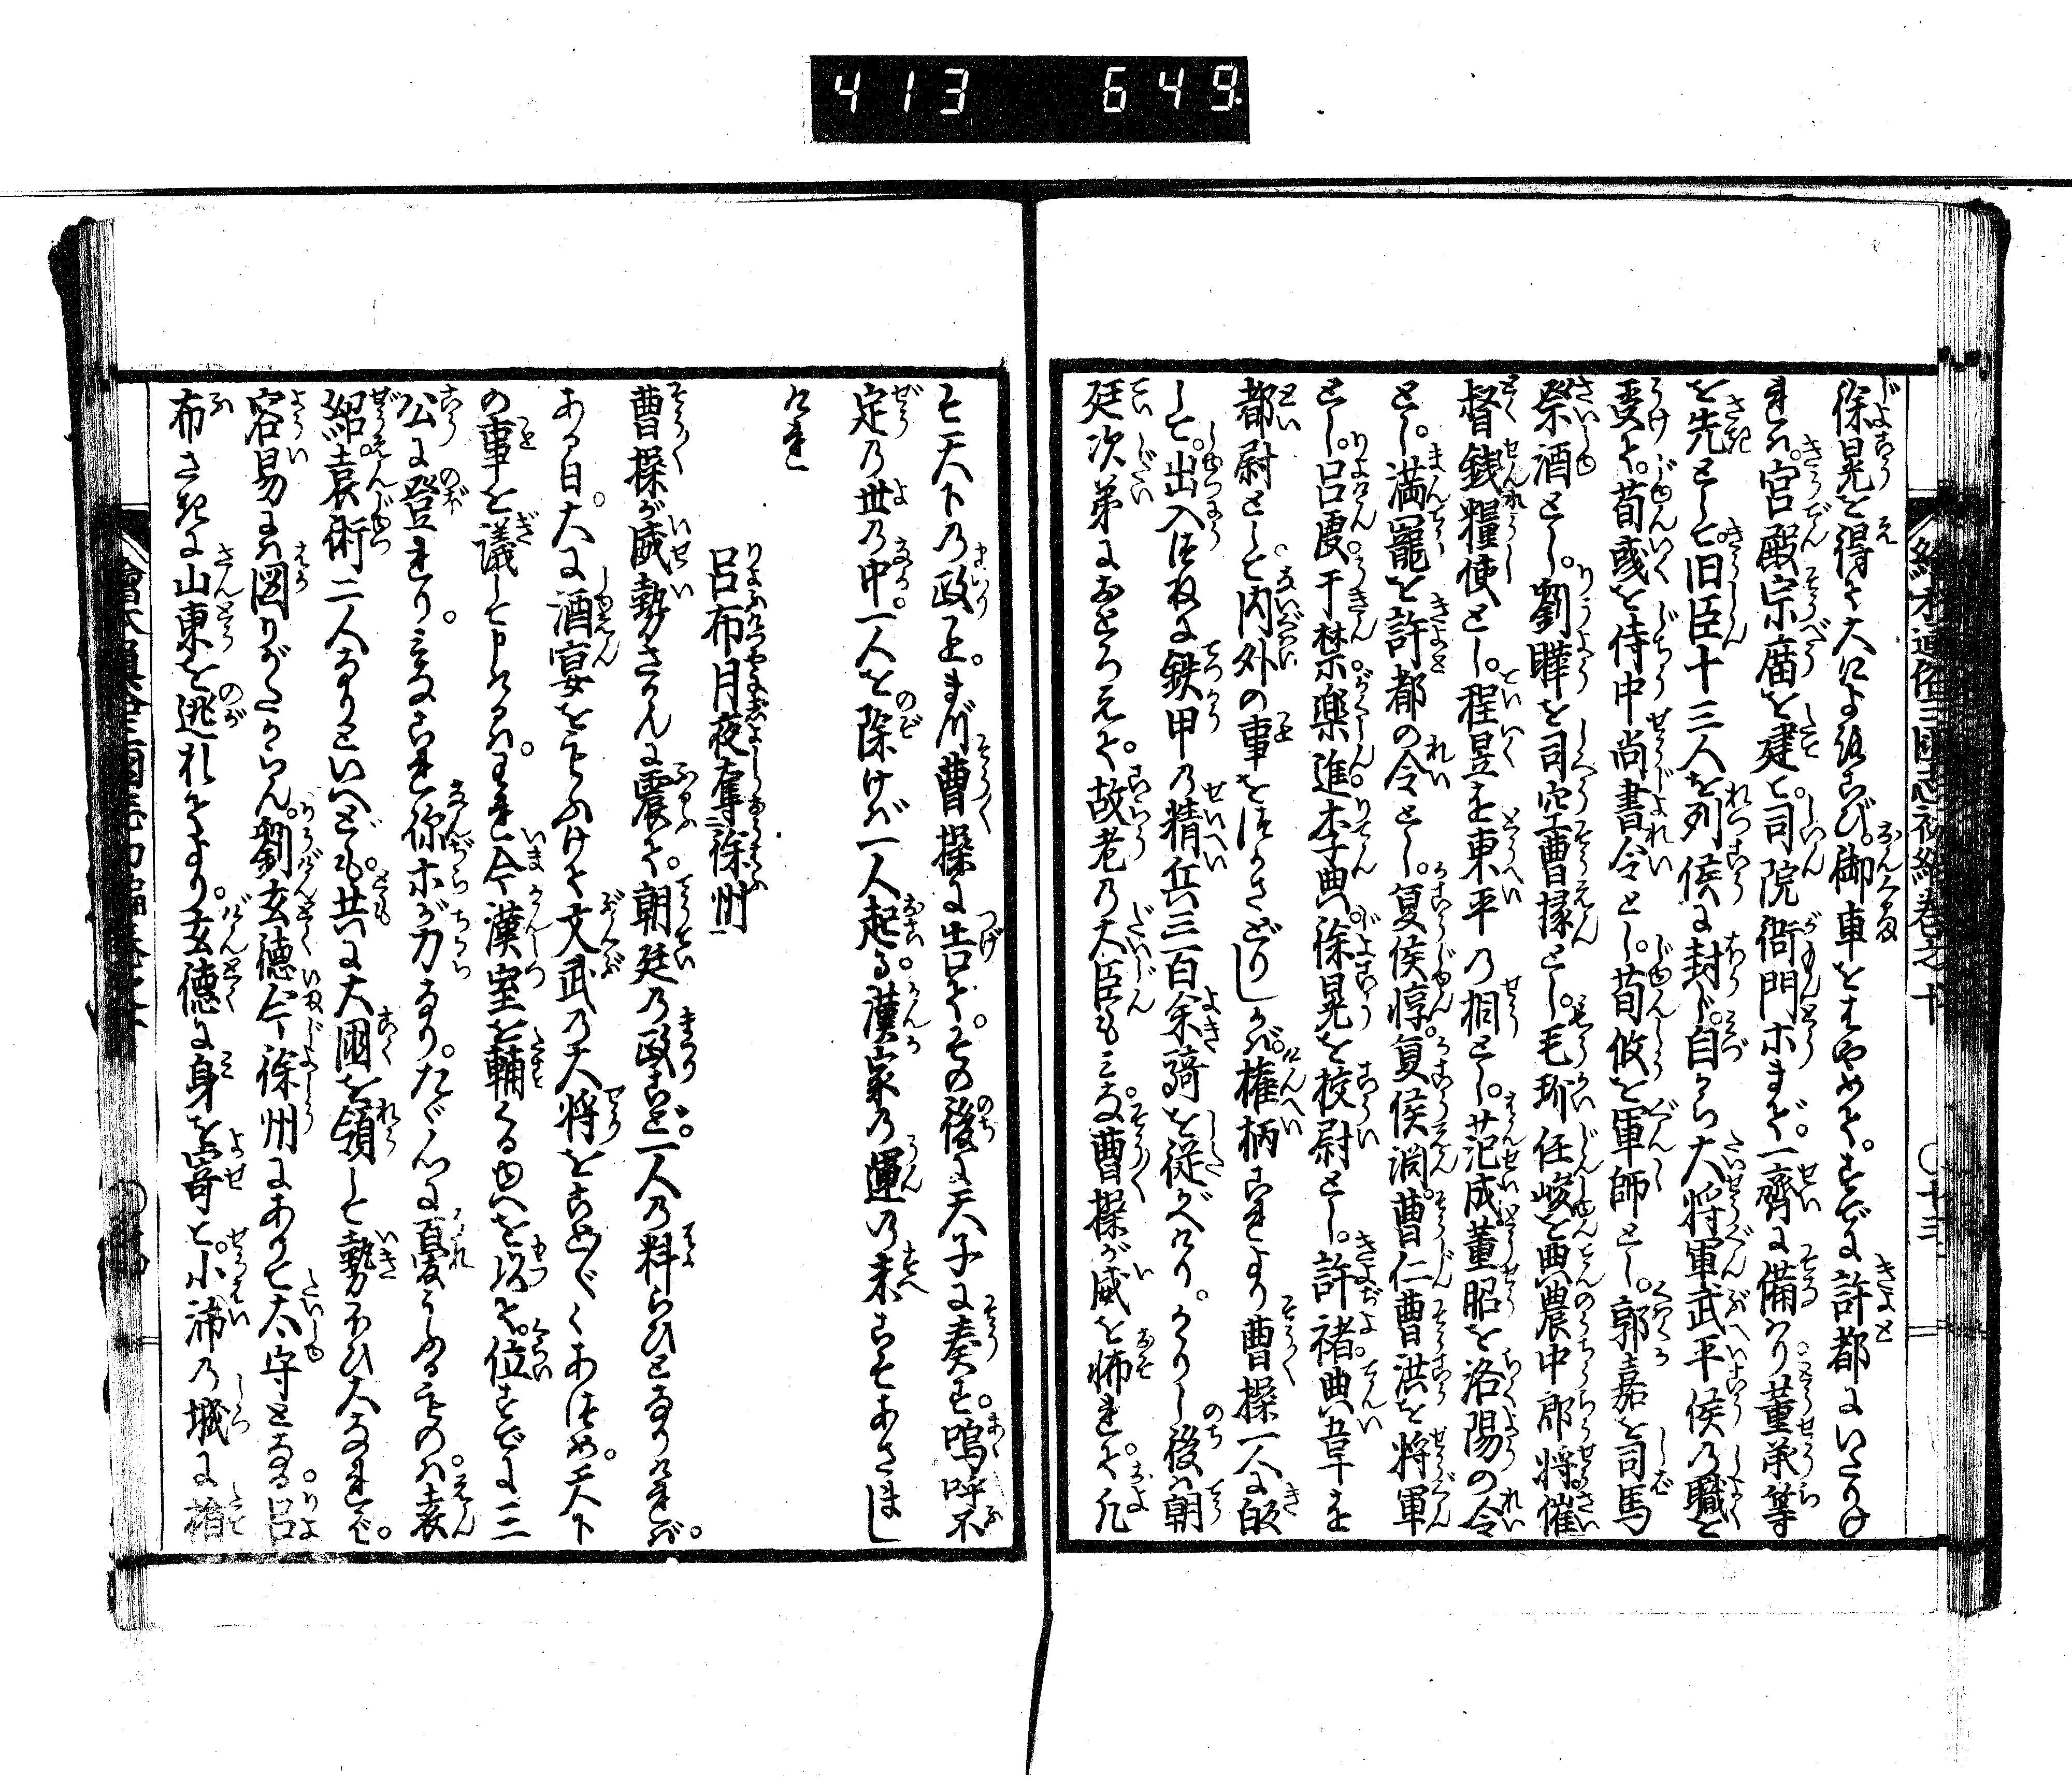 413 649
繪本通俗三國志初編卷之十 ○十三
徐晃を得て大によろこび。御車をはやめて。すでに許都にいたりけ
れバ。宮殿宗廟を建て。司院衙門ホまで。一齊に備ハり董承等
を先として。旧臣十三人を列侯に封ド。自から大将軍武平侯の職を
受く。荀彧を侍中尚書令とし。荀攸を軍師とし。郭嘉を司馬
祭酒とし。劉曄を司空曹掾とし。毛玠任峻を典農中郎将。催
督銭糧使とし。程昱を東平の相とし。范成董昭を洛陽の令
とし。満寵を許都の令とし。夏侯惇。夏侯淵。曹仁曹洪を将軍
とし。呂虔于禁。樂進。李典。徐晃を校尉とし。許褚。典韋を
都尉として。内外の事をつかさどりしかバ。権柄これより曹操一人に皈
して。出入つねに鉄甲の精兵三百余騎を従へけり。かゝりし後ハ朝
廷次第におとろえて。故老の大臣もミな曹操が威を怖れて。凡
そ天下の政事。まづ曹操に告て。その後に天子に奏す。嗚呼不
定の世の中。一人を除けバ一人起る。漢家の運の末こそあさまし
けれ
呂布月夜奪徐州
曹操が威勢さかんに震て。朝廷の政こと。一人の料らひとなりけれバ。
ある日。大に酒宴をまふけて文武の大将をことごとくあつめ。天下
の事を議して申けるハ。われ今漢室を輔くるゆへを以て。位すでに三
公に登れり。ミなこれ你ホが力なり。たゞ心に憂うるものハ。袁
紹。袁術二人なりといへども。共に大國を領して勢ひ大なれバ。
容易にハ図りがたからん。劉玄徳今徐州にありて太守となる。呂
布さきに山東を逃れてより。玄徳に身を寄て。小沛の城に楯